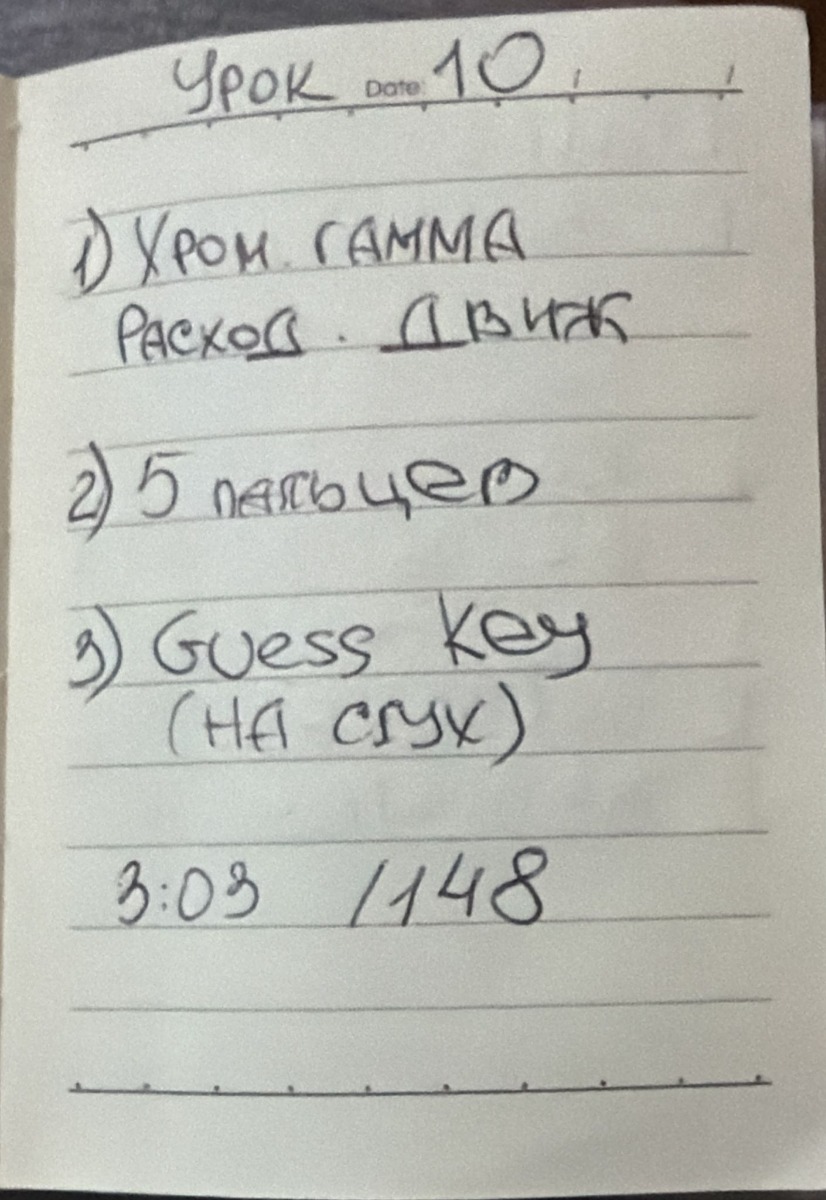 Урок Date: 10 / /
1) Хром. гамма
расход. движ
2) 5 пальцев
3) Guess key
(на слух)
3:03 /148